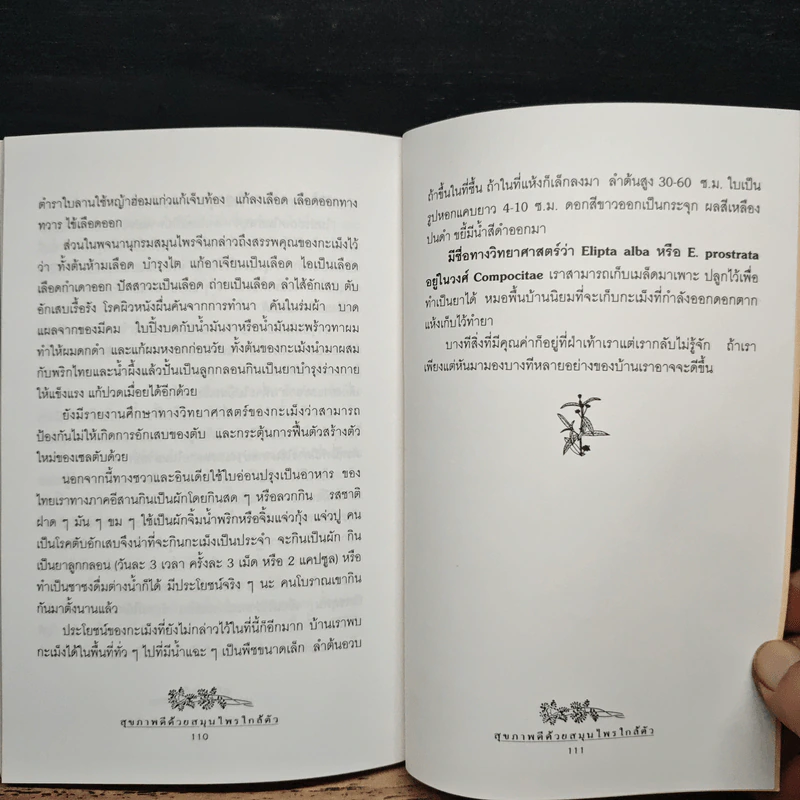 ตำราใบลานใช้หญ้าฮ่อมแก่วแก้เจ็บท้อง แก้ลงเลือด เลือดออกทาง
ทวาร ไข้เลือดออก
ส่วนในพจนานุกรมสมุนไพรจีนกล่าวถึงสรรพคุณของกะเม็งไว้
ว่า ทั้งต้นห้ามเลือด บำรุงไต แก้อาเจียนเป็นเลือด ไอเป็นเลือด
เลือดกำเดาออก ปัสสาวะเป็นเลือด ถ่ายเป็นเลือด ลำไส้อักเสบ ตับ
อักเสบเรื้อรัง โรคผิวหนังผื่นคันจากการทำนา คันในร่มผ้า บาด
แผลจากของมีคม ใบปิ้งบดกับน้ำมันงาหรือน้ำมันมะพร้าวทาผม
ทำให้ผมดกดำ และแก้ผมหงอกก่อนวัย ทั้งต้นของกะเม็งนำมาผสม
กับพริกไทยและน้ำผึ้งแล้วปั้นเป็นลูกกลอนกินเป็นยาบำรุงร่างกาย
ให้แข็งแรง แก้ปวดเมื่อยได้อีกด้วย
ยังมีรายงานศึกษาทางวิทยาศาสตร์ของกะเม็งว่าสามารถ
ป้องกันไม่ให้เกิดการอักเสบของตับ และกระตุ้นการฟื้นตัวสร้างตัว
ใหม่ของเซลตับด้วย
นอกจากนี้ทางชวาและอินเดียใช้ใบอ่อนปรุงเป็นอาหาร ของ
ไทยเราทางภาคอีสานกินเป็นผักโดยกินสด ๆ หรือลวกกิน รสชาติ
ฝาด ๆ มัน ๆ ขม ๆ ใช้เป็นผักจิ้มน้ำพริกหรือจิ้มแจ่วกุ้ง แจ่วปู คน
เป็นโรคตับอักเสบจึงน่าที่จะกินกะเม็งเป็นประจำ จะกินเป็นผัก กิน
เป็นยาลูกกลอน (วันละ 3 เวลา ครั้งละ 3 เม็ด หรือ 2 แคปซูล) หรือ
ทำเป็นชาชงดื่มต่างน้ำก็ได้ มีประโยชน์จริง ๆ นะ คนโบราณเขากิน
กันมาตั้งนานแล้ว
ประโยชน์ของกะเม็งที่ยังไม่กล่าวไว้ในที่นี้ก็อีกมาก บ้านเราพบ
กะเม็งได้ในพื้นที่ทั่ว ๆ ไปที่มีน้ำแฉะ ๆ เป็นพืชขนาดเล็ก ลำต้นอวบ
สุขภาพดีด้วยสมุนไพรใกล้ตัว
110
ถ้าขึ้นในที่ชื้น ถ้าในที่แห้งก็เล็กลงมา ลำต้นสูง 30-60 ซ.ม. ใบเป็น
รูปหอกแคบยาว 4-10 ซ.ม. ดอกสีขาวออกเป็นกระจุก ผลสีเหลือง
ปนดำ ขยี้มีน้ำสีดำออกมา
มีชื่อทางวิทยาศาสตร์ว่า Elipta alba หรือ E. prostrata
อยู่ในวงศ์ Compocitae เราสามารถเก็บเมล็ดมาเพาะ ปลูกไว้เพื่อ
ทำเป็นยาได้ หมอพื้นบ้านนิยมที่จะเก็บกะเม็งที่กำลังออกดอกตาก
แห้งเก็บไว้ทำยา
บางทีสิ่งที่มีคุณค่าก็อยู่ที่ฝ่าเท้าเราแต่เรากลับไม่รู้จัก ถ้าเรา
เพียงแต่หันมามองบางทีหลายอย่างของบ้านเราอาจจะดีขึ้น
สุขภาพดีด้วยสมุนไพรใกล้ตัว
111